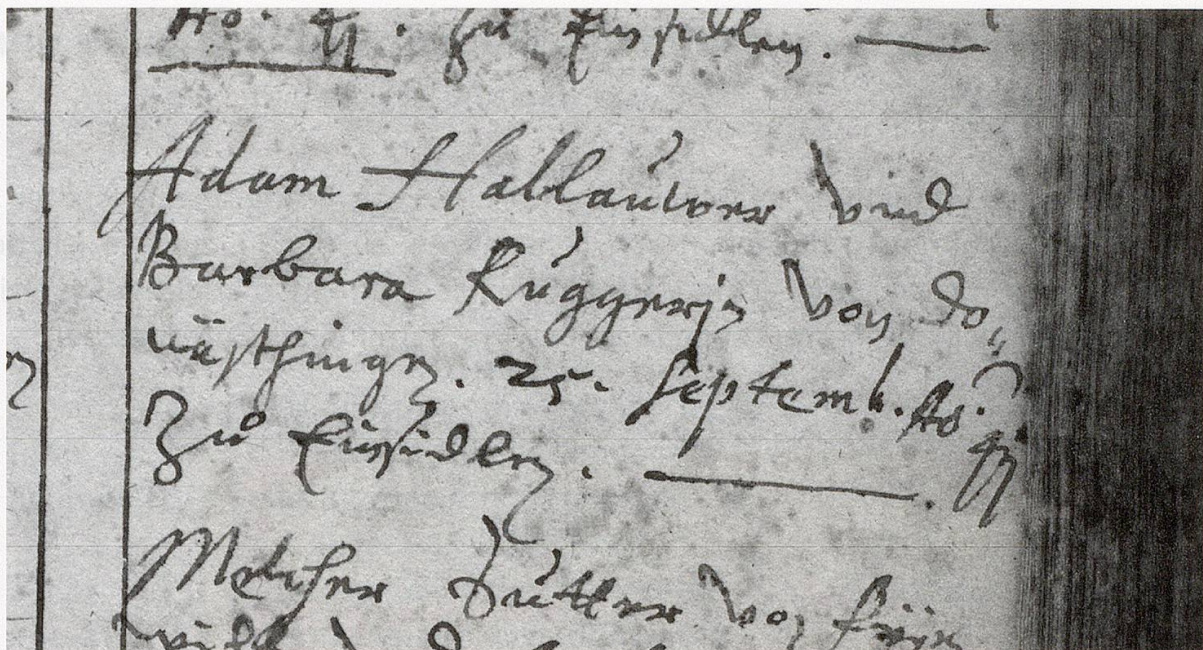 Ao. 91. Zu Einsidlen.
Adam Hallauwer vnd
Barbara Ruggerin von Do„
näschingen. 25. Septemb. Ao. 91
Zu Einsidlen.
Melcher Sutter von